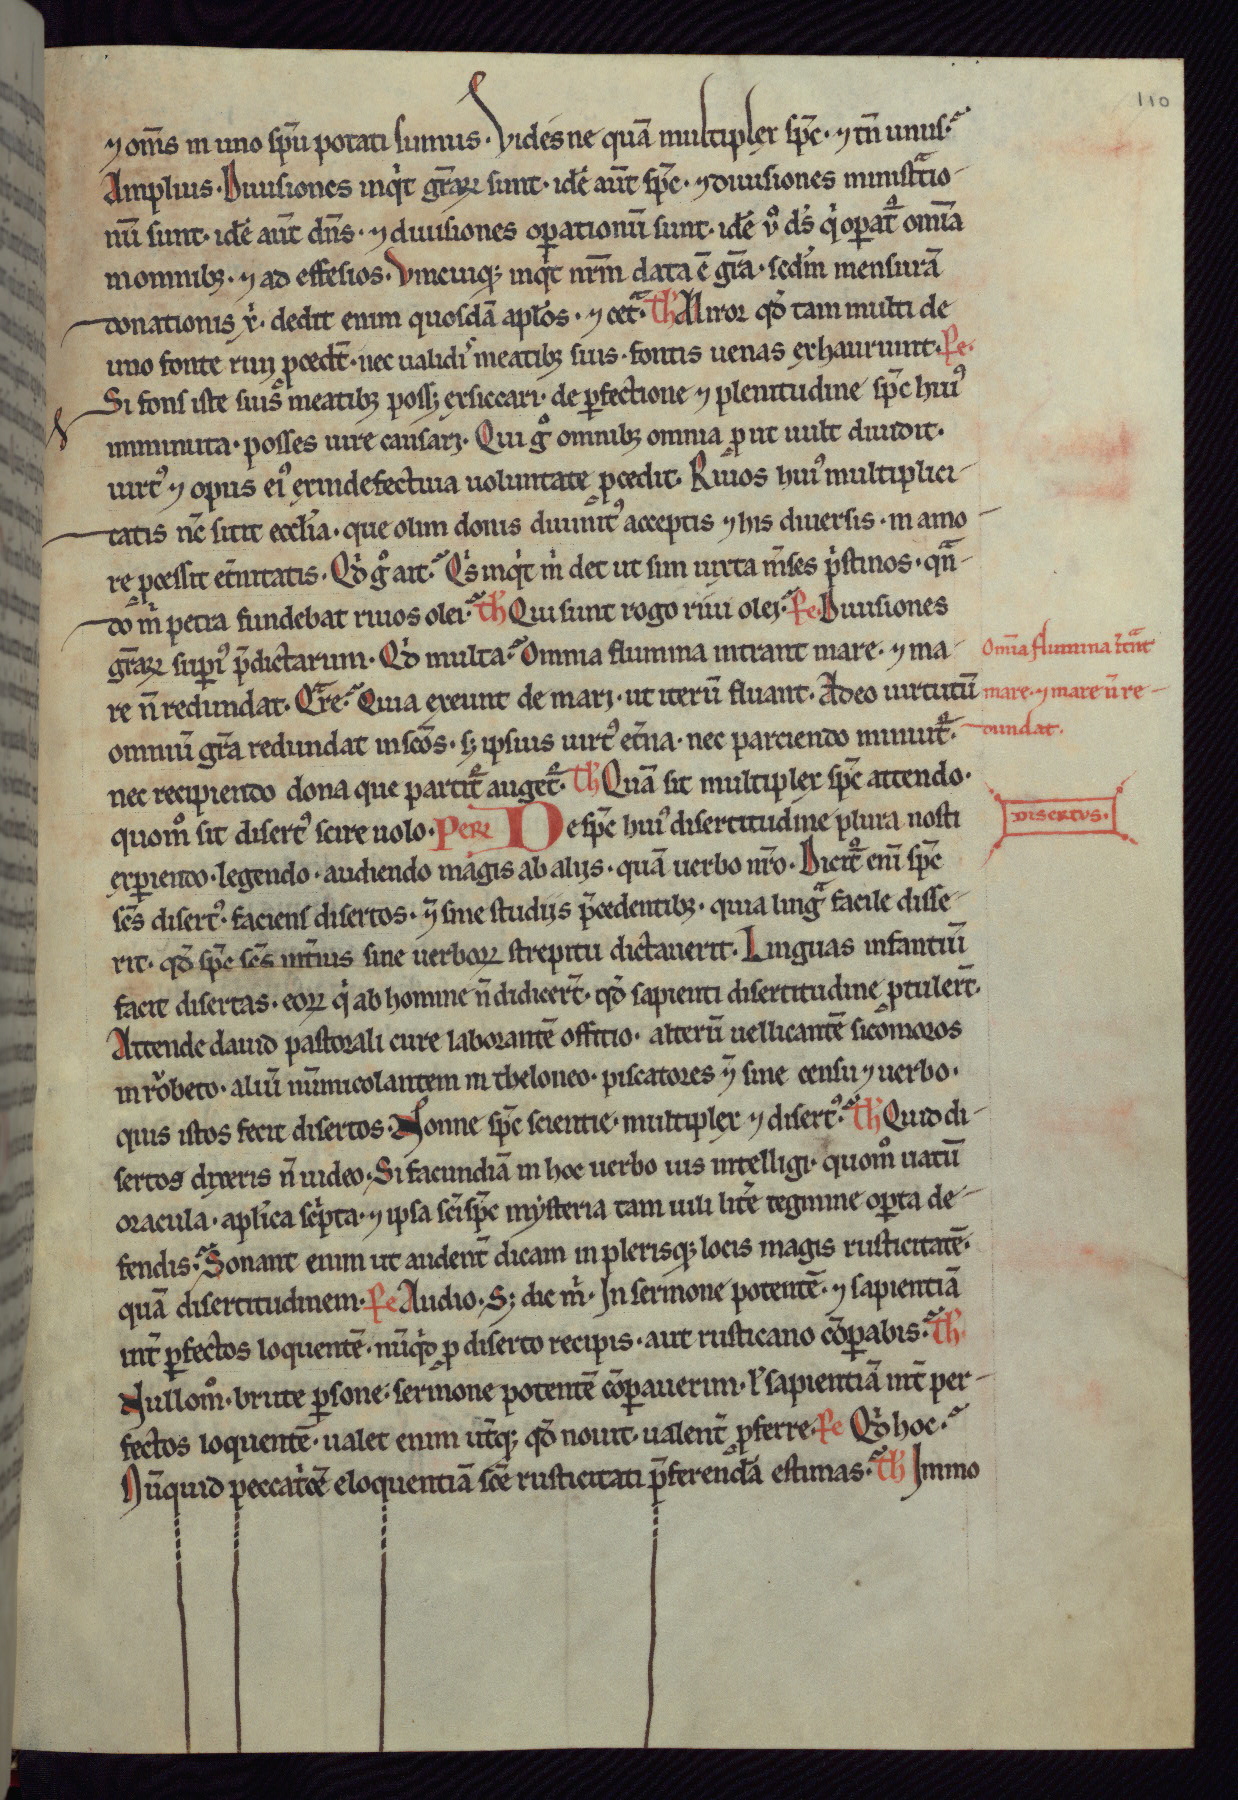 110
⁊ om̄s in uno sp̄u potati sumus. Vides ne quā multiplex sp̄c. ⁊ tn̄ unus.
Amplius. Diuisiones inqͥt gr̄aꝝ sunt. idē aūt sp̄c. ⁊ diuisiones minist͛tio-
nū sunt. idē aūt dn̄s. ⁊ diuisiones oꝑationū sunt. idē ỽ d̄s qͥ oꝑat᷑ om̄ia
in omnibꝫ. ⁊ ad effesios. Vnicuiqꝫ inqͥt nr̄m data ē gr̄a. sedm̄ mensurā
donationis x̄. dedit enim quosdā apl̄os. ⁊ cet͛. Th̄ Miror qd̄ tam multi de
uno fonte riuj ꝓcedt̄. nec ualidiˢ meatibꝫ suis. fontis uenas exhauriunt. Pe.
Si fons iste suis meatibꝫ possꝫ exsiccari. de ꝑfectione ⁊ plenitudine sp̄c huiꝰ
imminuta. posses iure causarj. Qui gͦ omnibꝫ omnia ꝓut uult diuidit.
uirtꝰ ⁊ opus eiꝰ ex indefectiua uoluntate ꝓcedit. Riuos huiꝰ multiplici-
tatis nc̄ sitit eccl̄ia. que olim donis diuinitꝰ acceptis ⁊ his diuersis. in amo-
re ꝓcessit et̄nitatis. Qͥd gͦ ait. Qͥs inqͥt m̄ det ut sim iuxta m̄ses pͥstinos. qn̄-
do m̄ petra fundebat riuos olei. Th̄ Qui sunt rogo riui olej. Pe. Diuisiones
gr̄aꝝ supiꝰ p̄dictarum. Qͥd multa. Omnia flumina intrant mare. ⁊ ma-
re n̄ redundat. Qͣre. Quia exeunt de marj. ut iterū fluant. Adeo uirtutū
omniū gr̄a redundat in sc̄os. sꝫ ipsius uirtꝰ et̄na. nec parciendo minuit᷑.
nec recipiendo dona que partit᷑ auget᷑. Th̄ Quā sit multiplex sp̄c attendo.
quomͦ sit disertꝰ scire uolo. PERE De sp̄c huiꝰ disertitudine plura nosti
exꝑiendo. legendo. audiendo magis ab alijs. quā uerbo nr̄o. Dicit᷑ eni᷑ sp̄c
sc̄s disertꝰ. faciens disertos. ⁊̄ sine studijs p̄cedentibꝫ. quia lingͣ facile disse-
rit. qd̄ sp̄c sc̄s int̄ius sine uerboꝝ strepitu dictauerit. Linguas infantiū
facit disertas. eoꝝ qͥ ab homine n̄ didicer̄t. qd̄ sapienti disertitudine ꝓtuler̄t.
Attende dauid pastorali cure laborantē offitio. alterū uellicantē sicomoros
in rōbeto. aliū nūmicolantem in theloneo. piscatores ⁊̄ sine censu ⁊ uerbo.
quis istos fecit disertos. Nonne sp̄c scientie. multiplex ⁊ disertꝰ. Th̄ Quid di-
sertos dixeris n̄ uideo. Si facundiā in hoc uerbo uis intelligi. quomͦ uatū
oracula. apl̄ica scͥpta. ⁊ ipsa sc̄i sp̄c mẏsteria tam uili lit̄e tegmine oꝑta de-
fendis. Sonant enim ut audent̄ dicam in plerisqꝫ locis magis rusticitatē.
quā disertitudinem. Pe Audio. Sꝫ dic m̄. In sermone potentē. ⁊ sapientiā
int̄ ꝑfectos loquentē. nūqͥd ꝓ diserto recipis. aut rusticano cōꝑabis. Th̄
Nullomͦ. brute ꝑsone. sermone potentē cōꝑauerim. l̄ sapientiā int̄ per-
fectos loquentē. ualet enim ut̄qꝫ qd̄ nouit. ualent̄ ꝓferre. Pe Qͥd hoc.
Nūquid peccat͛cē eloquentiā sc̄e rusticitati p̄ferendā estimas. Th̄ Immo
Om̄ia flumina ĩt͛nt
mare. ⁊ mare n̄ re-
dundat.
DISERTVS.